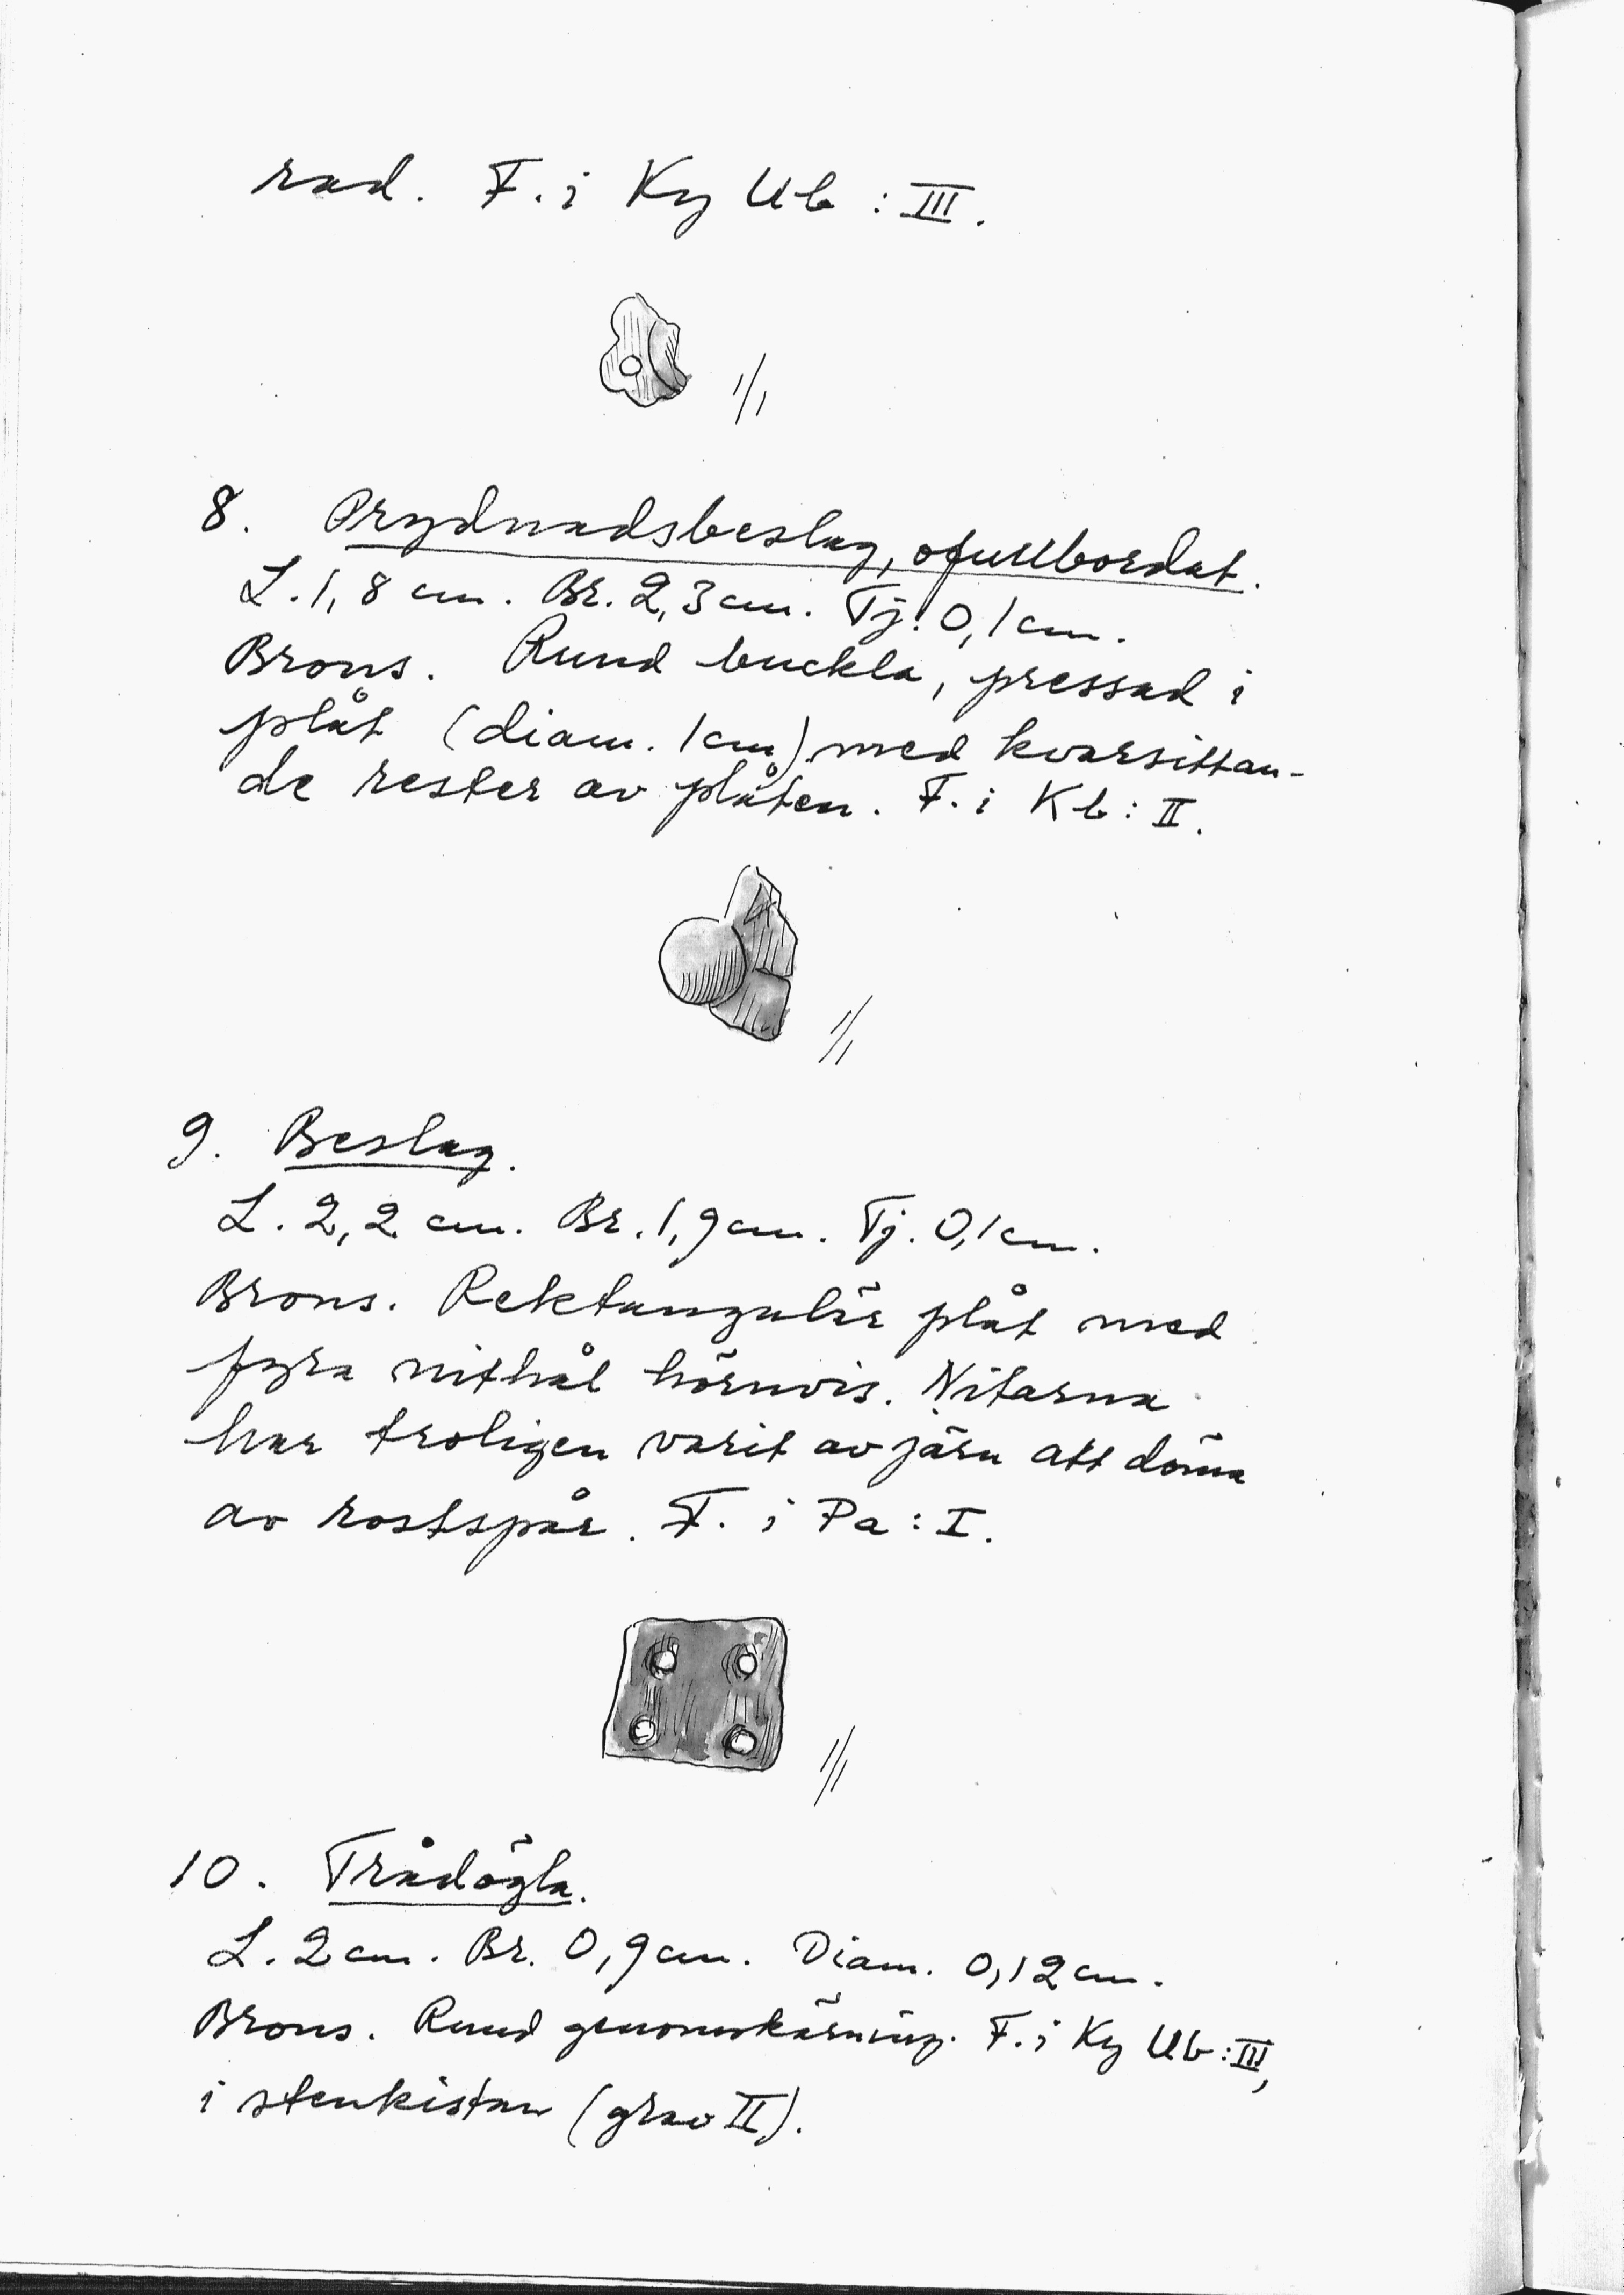 rad. F. i Ky Ub : III.
1/1
8. Prydnadsbeslag, ofullbordat.
L. 1,8 cm. Br. 2,3 cm. Tj. 0,1 cm.
Brons. Rund buckla, pressad i
plåt (diam. 1 cm) med kvarsittan-
de rester av plåten. F. i Kb : II.
1/1
9. Beslag.
L. 2,2 cm. Br. 1,9 cm. Tj. 0,1 cm.
Brons. Rektangulär plåt med
fyra nithål hörnvis. Nitarna
har troligen varit av järn att döma
av rostspår. F. i Pa : I.
1/1
10. Trådögla.
L. 2 cm. Br. 0,9 cm. Diam. 0,12 cm.
Brons. Rund genomskärning. F. i Ky Ub : III,
i stenkistan (grav II).